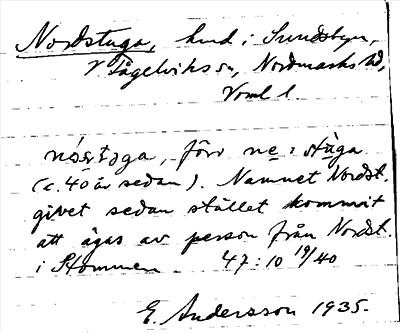 Nordstuga, hmd i Sundsbyn,
V Fågelviks sn, Nordmarks hd,
Vrml l.
förr
(c. 40 år sedan). Namnet Nordst.
givet sedan stället kommit
att ägas av person från Nordst.
i Stommen 47:10 19/40
E. Andersson 1935.